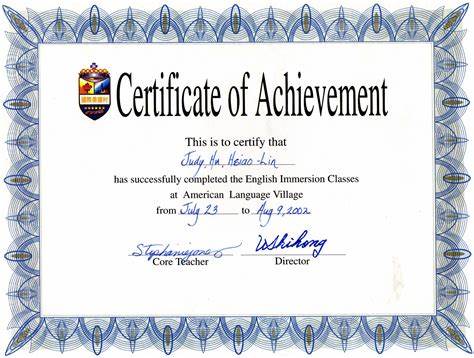 Certificate of Achievement
This is to certify that
Judy, Hu, Hsiao-Lin
has successfully completed the English Immersion Classes
at American Language Village
from July 23 to Aug 9, 2002
Core Teacher Director